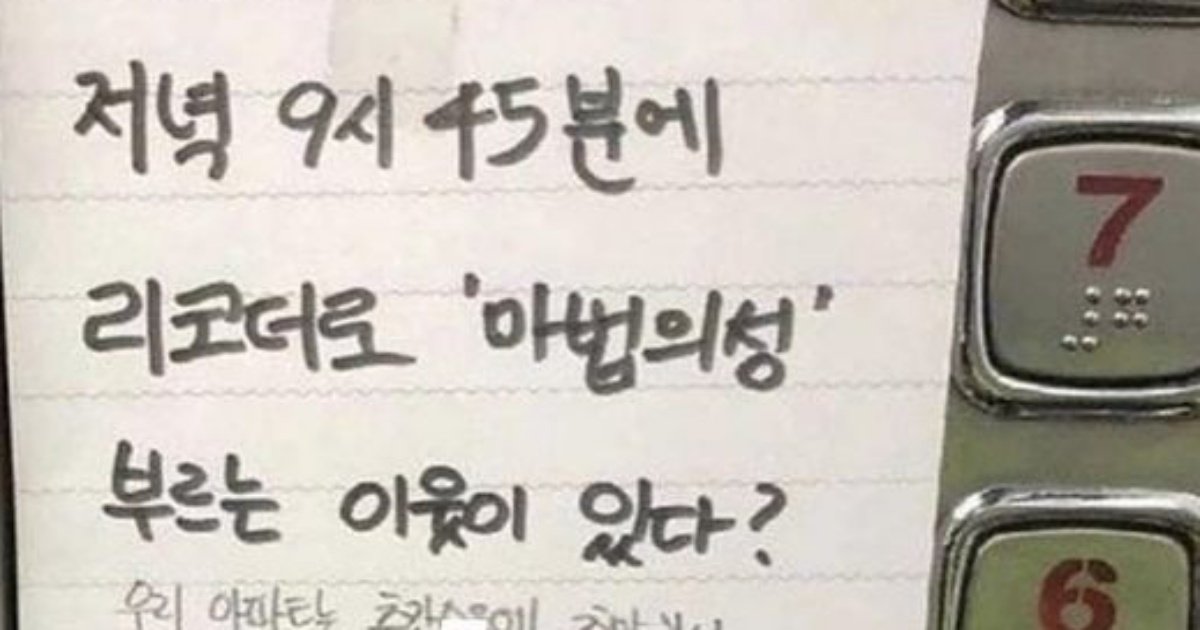 저녁 9시 45분에
리코더로 '마법의성'
부르는 이웃이 있다?
우리 아파트는
7
6